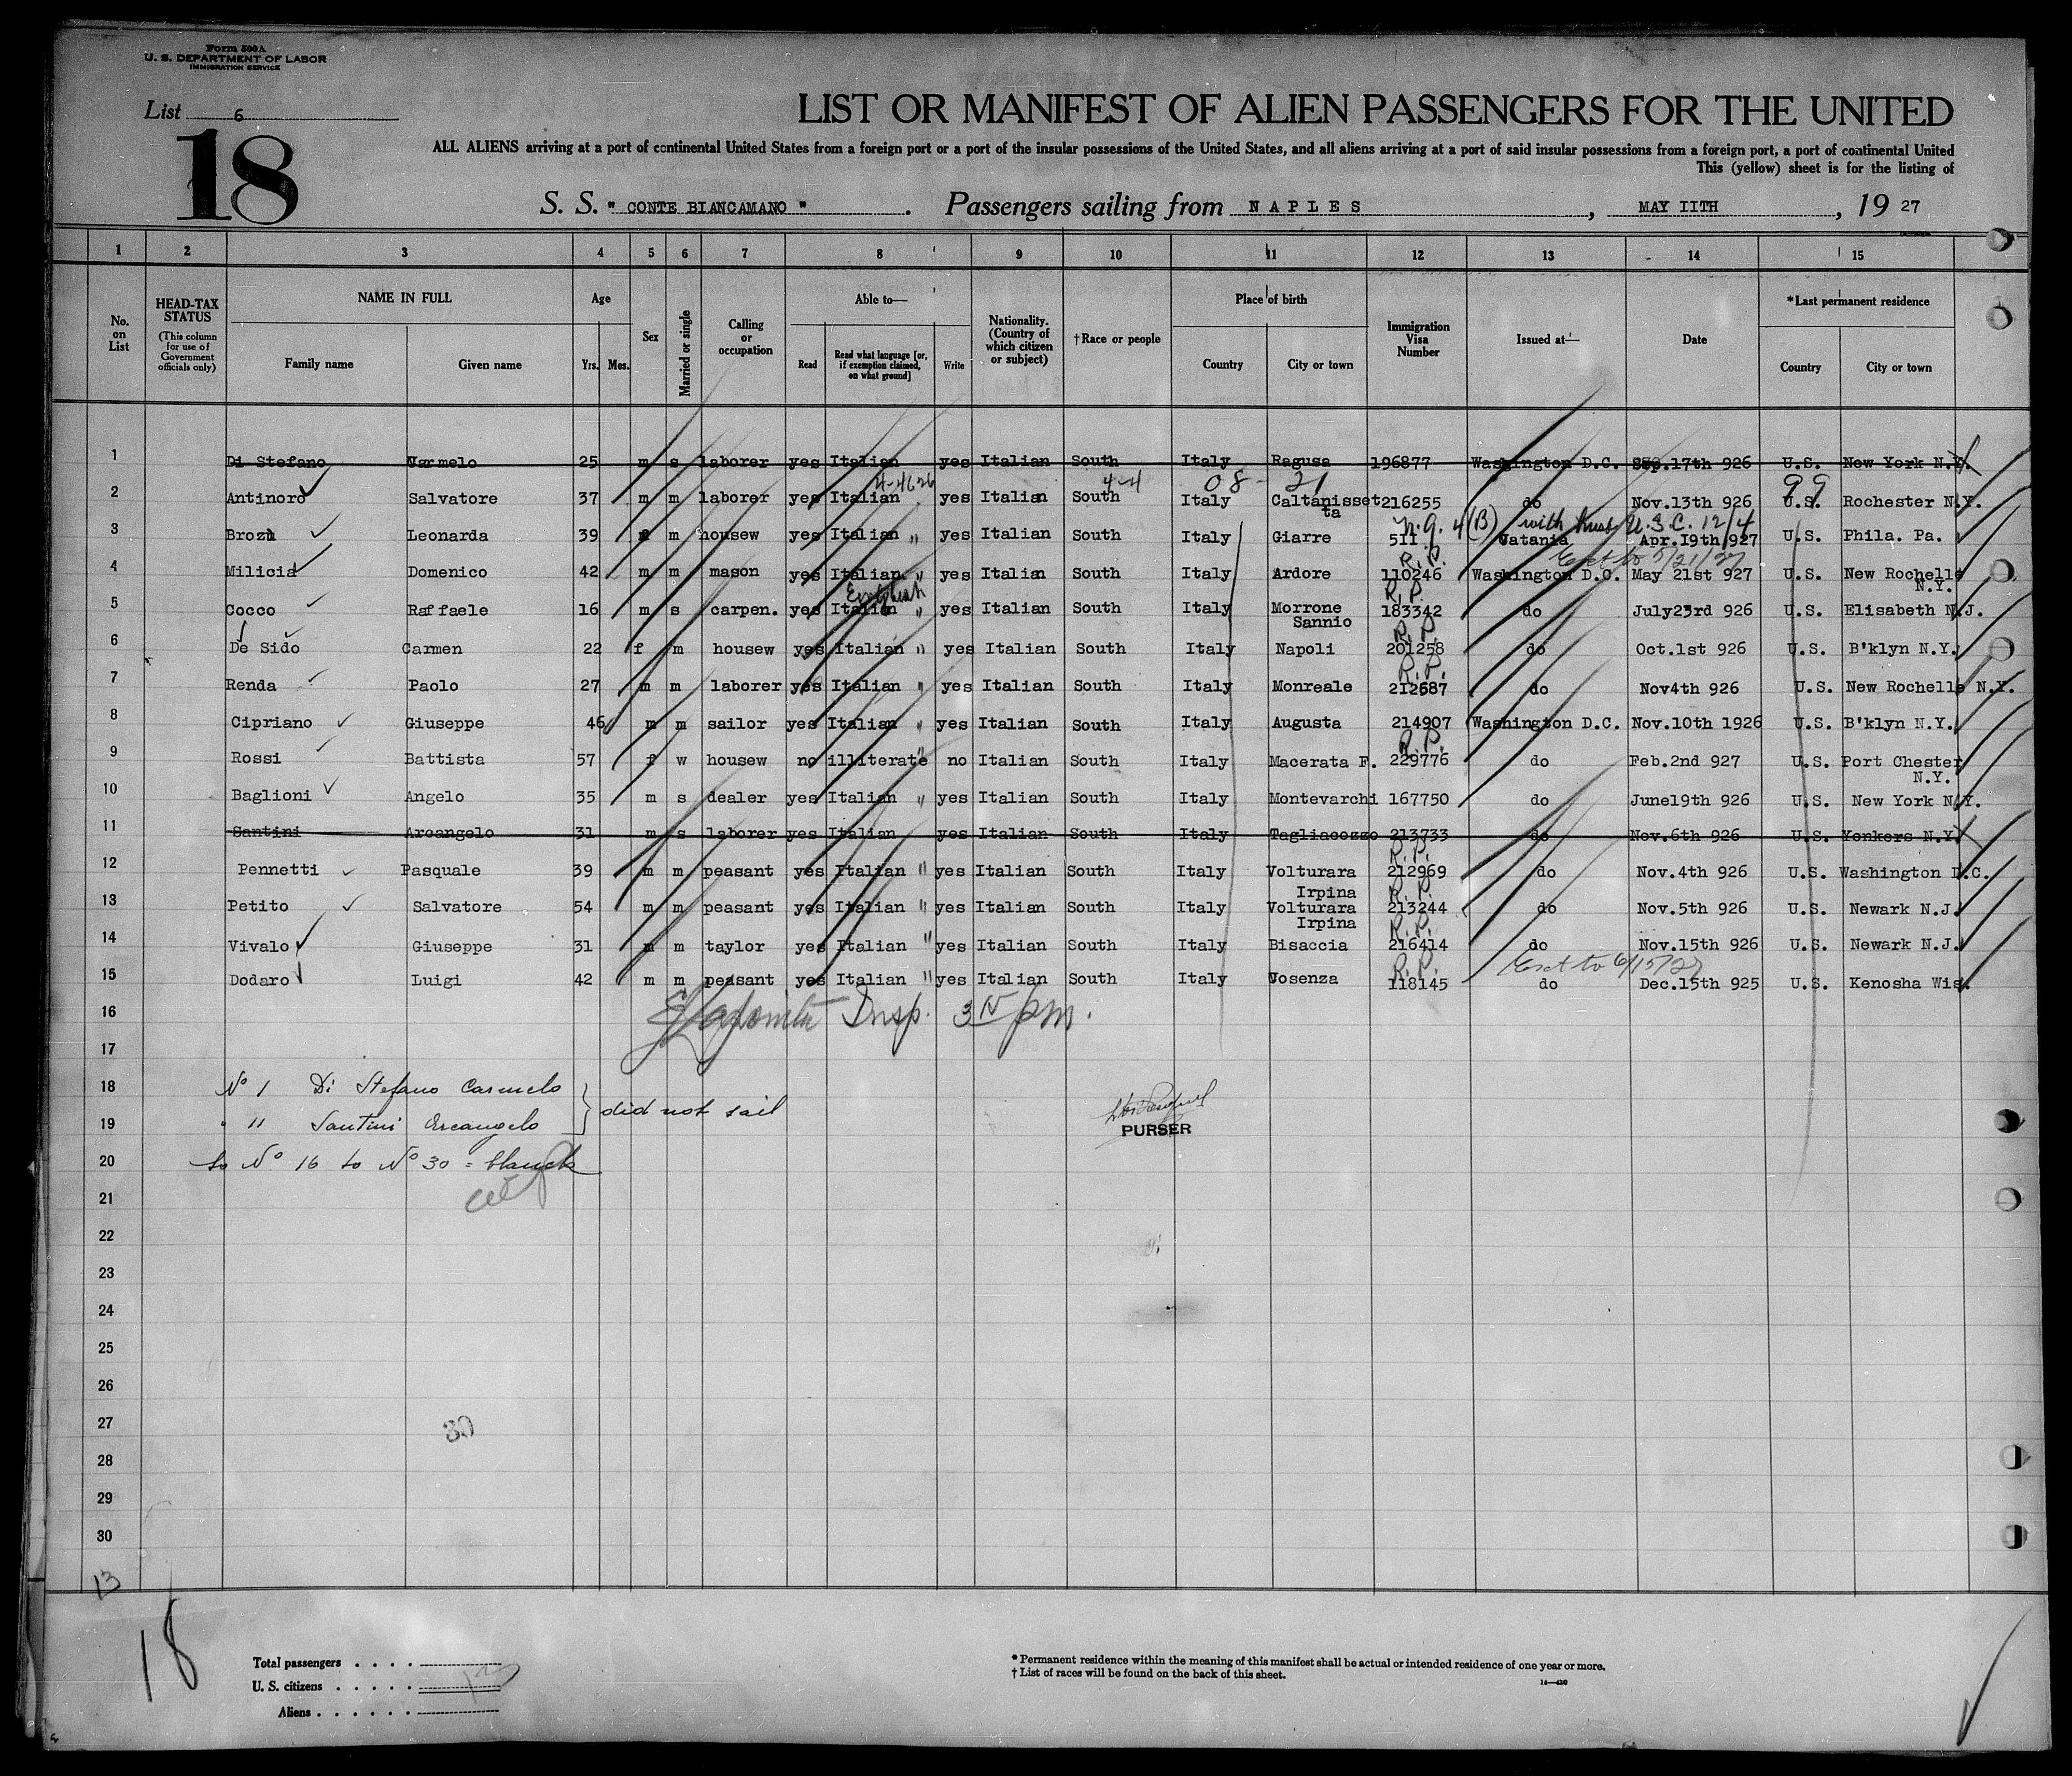 Form 500A
U. S. DEPARTMENT OF LABOR
IMMIGRATION SERVICE
List 6
18
LIST OR MANIFEST OF ALIEN PASSENGERS FOR THE UNITED
ALL ALIENS arriving at a port of continental United States from a foreign port or a port of the insular possessions of the United States, and all aliens arriving at a port of said insular possessions from a foreign port, a port of continental United
This (yellow) sheet is for the listing of
S. S. " CONTE BIANCAMANO ". Passengers sailing from NAPLES, MAY IITH, 19 27
1 2 3 4 5 6 7 8 9 10 11 12 13 14 15
No. on List
HEAD-TAX STATUS
(This column for use of Government officials only)
NAME IN FULL
Family name Given name
Age
Yrs. Mos.
Sex
Married or single
Calling or occupation
Able to—
Read
Read what language [or, if exemption claimed, on what ground]
Write
Nationality. (Country of which citizen or subject)
†Race or people
Place of birth
Country City or town
Immigration Visa Number
Issued at—
Date
*Last permanent residence
Country City or town
1 Di Stefano Varmelo 25 m s laborer yes Italian yes Italian South Italy Ragusa 196877 Washington D.C. Sep.17th 926 U.S. New York N.Y.
4-4 08- 21 99
2 Antinoro Salvatore 37 m m laborer yes Italian yes Italian South Italy Caltanisset 216255 do Nov.13th 926 U.S. Rochester N.Y.
ta
N.Q. 4(B) with U.S.C. 12/4
3 Leonarda 39 f m housew yes Italian " yes Italian South Italy Giarre 511 Vatania Apr.19th 927 U.S. Phila. Pa.
R.P. 5/21/27
4 Milicia Domenico 42 m m mason yes Italian " yes Italian South Italy Ardore 110246 Washington D.C. May 21st 927 U.S. New Rochelle
N.Y.
English R.P.
5 Cocco Raffaele 16 m s carpen. yes Italian " yes Italian South Italy Morrone 183342 do July23rd 926 U.S. Elisabeth N.J.
Sannio
R.P.
6 De Sido Carmen 22 f m housew yes Italian " yes Italian South Italy Napoli 201258 do Oct.1st 926 U.S. B'klyn N.Y.
R.P.
7 Renda Paolo 27 m m laborer yes Italian " yes Italian South Italy Monreale 212687 do Nov4th 926 U.S. New Rochelle N.Y.
8 Cipriano Giuseppe 46 m m sailor yes Italian " yes Italian South Italy Augusta 214907 Washington D.C. Nov.10th 1926 U.S. B'klyn N.Y.
R.P.
9 Rossi Battista 57 f w housew no illiterate " no Italian South Italy Macerata F. 229776 do Feb.2nd 927 U.S. Port Chester
N.Y.
10 Baglioni Angelo 35 m s dealer yes Italian " yes Italian South Italy Montevarchi 167750 do June19th 926 U.S. New York N.Y.
11 Santini Arcangelo 31 m s laborer yes Italian yes Italian South Italy Tagliacozzo 213733 do Nov.6th 926 U.S. Yonkers N.Y.
R.P.
12 Pennetti Pasquale 39 m m peasant yes Italian " yes Italian South Italy Volturara 212969 do Nov.4th 926 U.S. Washington D.C.
Irpina R.P.
13 Petito Salvatore 54 m m peasant yes Italian " yes Italian South Italy Volturara 213244 do Nov.5th 926 U.S. Newark N.J.
Irpina R.P.
14 Vivalo Giuseppe 31 m m taylor yes Italian " yes Italian South Italy Bisaccia 216414 do Nov.15th 926 U.S. Newark N.J.
R.P. 6/15/27
15 Dodaro Luigi 42 m m peasant yes Italian " yes Italian South Italy Vosenza 118145 do Dec.15th 925 U.S. Kenosha Wis.
16 Insp. pm.
17
18 No 1 Di Stefano Carmelo
did not sail
19 " 11 Santini Arcangelo
PURSER
20 to No 16 to No 30 = blanck
21
22
23
24
25
26
27
30
28
29
30
13
18
Total passengers
U. S. citizens
Aliens
* Permanent residence within the meaning of this manifest shall be actual or intended residence of one year or more.
† List of races will be found on the back of this sheet.